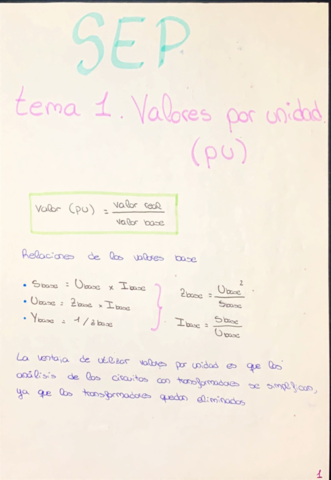 SEP
tema 1. Valores por unidad.
(pu)
Valor (pu) = valor real / valor base
Relaciones de los valores base
• Sbase = Ubase x Ibase
• Ubase = Zbase x Ibase
• Ybase = 1/Zbase
Zbase = Ubase² / Sbase
Ibase = Sbase / Ubase
La ventaja de utilizar valores por unidad es que los
análisis de los circuitos con transformadores se simplifican,
ya que los transformadores quedan eliminados
1